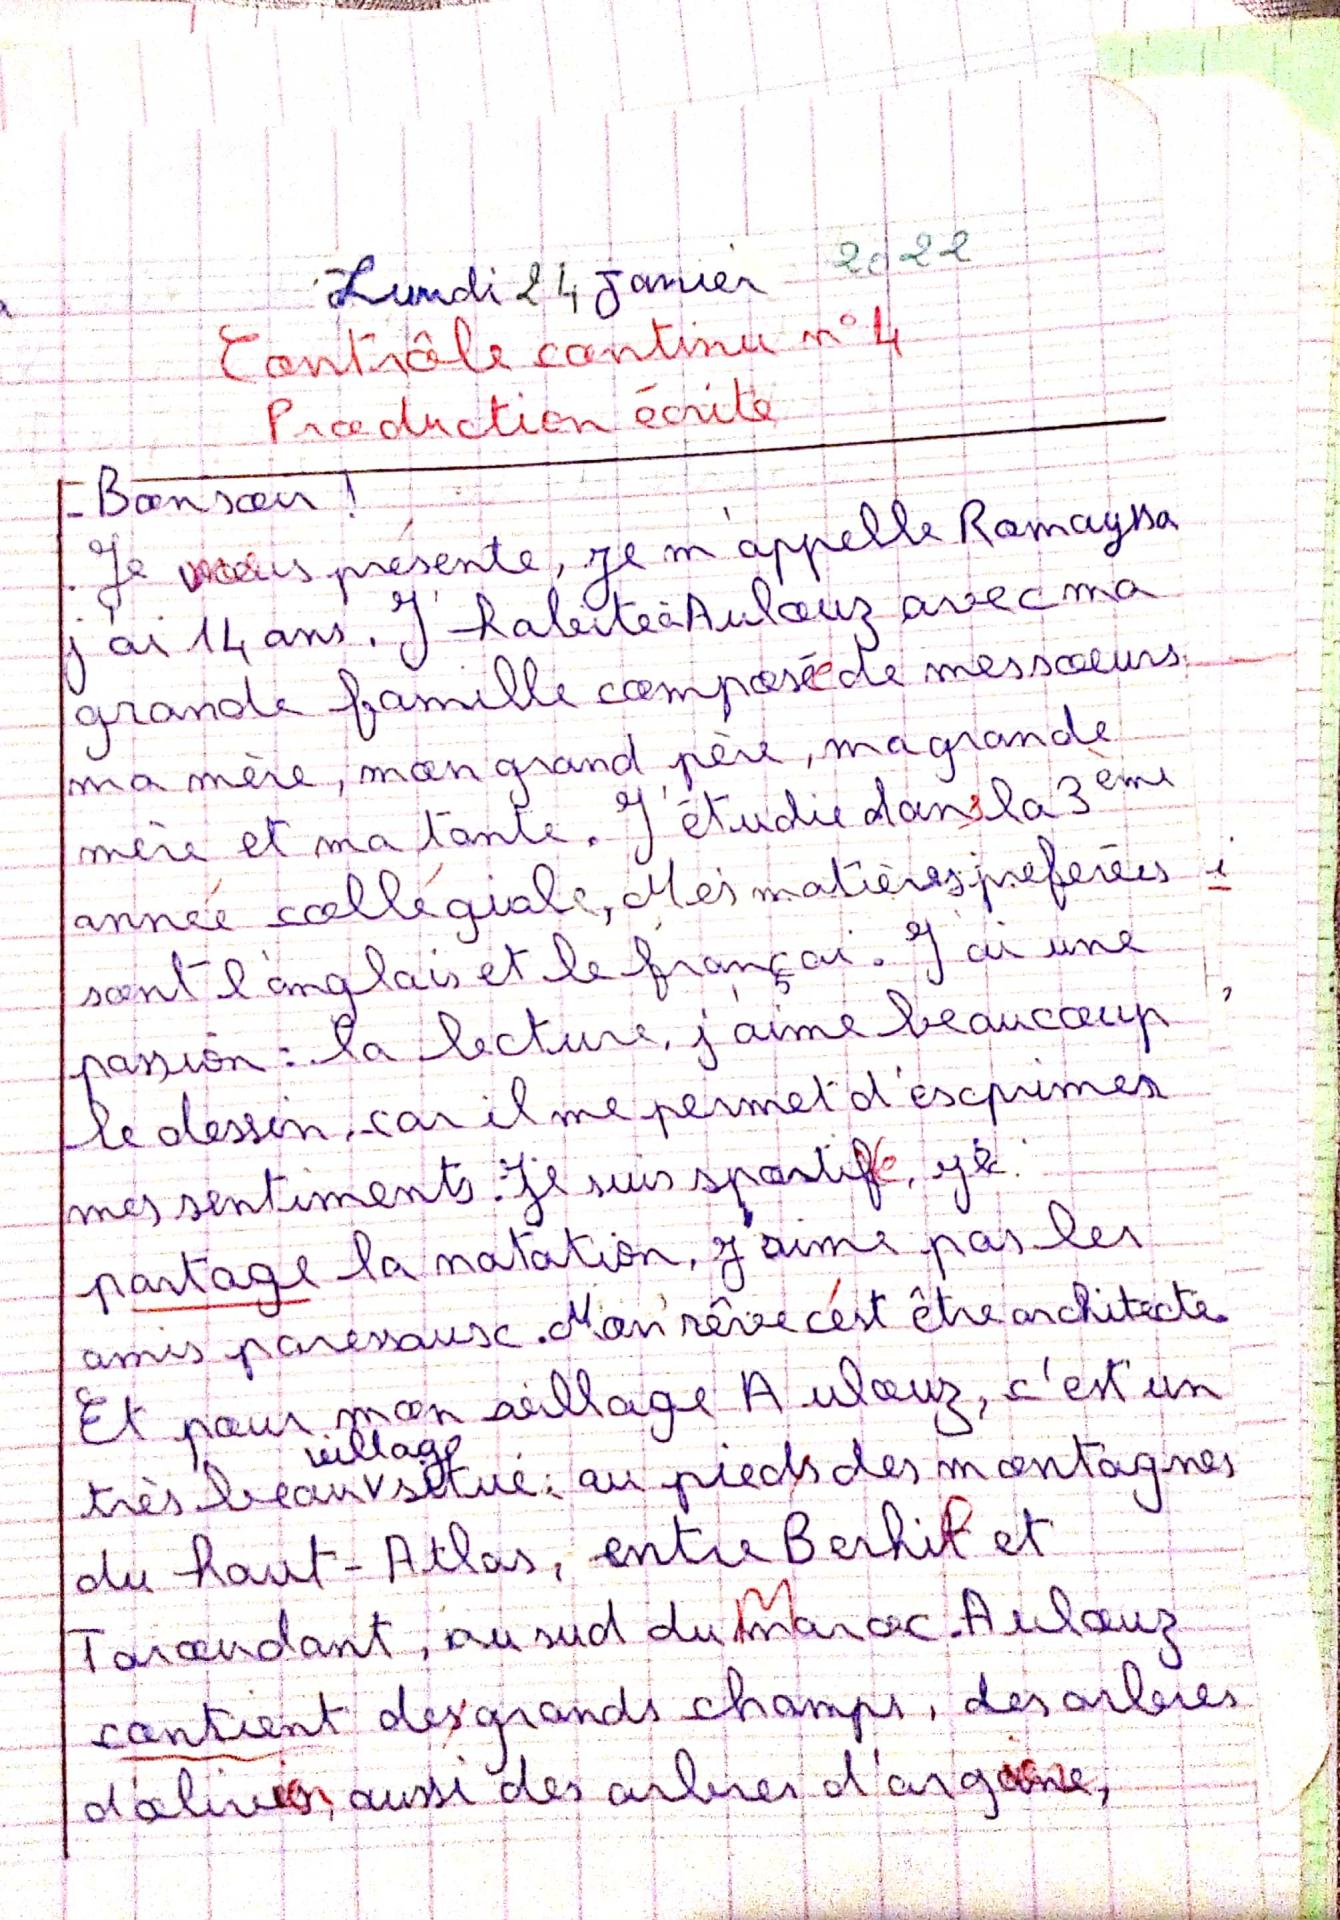 Lundi 24 Janvier 2022
Contrôle continu n° 4
Production écrite
- Bonsoir !
. Je vous présente, je m'appelle Romayssa
j'ai 14 ans. J'habite à Aulouz avec ma
grande famille composée de mes sœurs
ma mère, mon grand père, ma grande
mère et ma tante. J'étudie dans la 3ème
année collégiale, Mes matières preferées
sont l'anglais et le françai. J'ai une
passion : la lecture, j'aime beaucoup
le dessin, car il me permet d'exprimer
mes sentiments. Je suis sportife, je
partage la natation, j'aime pas les
amis paressaux. Mon rêve c'est être architecte.
Et pour mon village Aulouz, c'est un
très beau village situé au pieds des montagnes
du haut-Atlas, entre Berhil et
Taroudant, au sud du Maroc. Aulouz
contient des grands champs, des arbres
d'olivier, aussi des arbres d'argane,